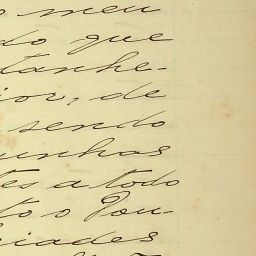 meu
do que
tanhe-
ior, de
sendo
unhas
tes a todo
to o Dou-
iades